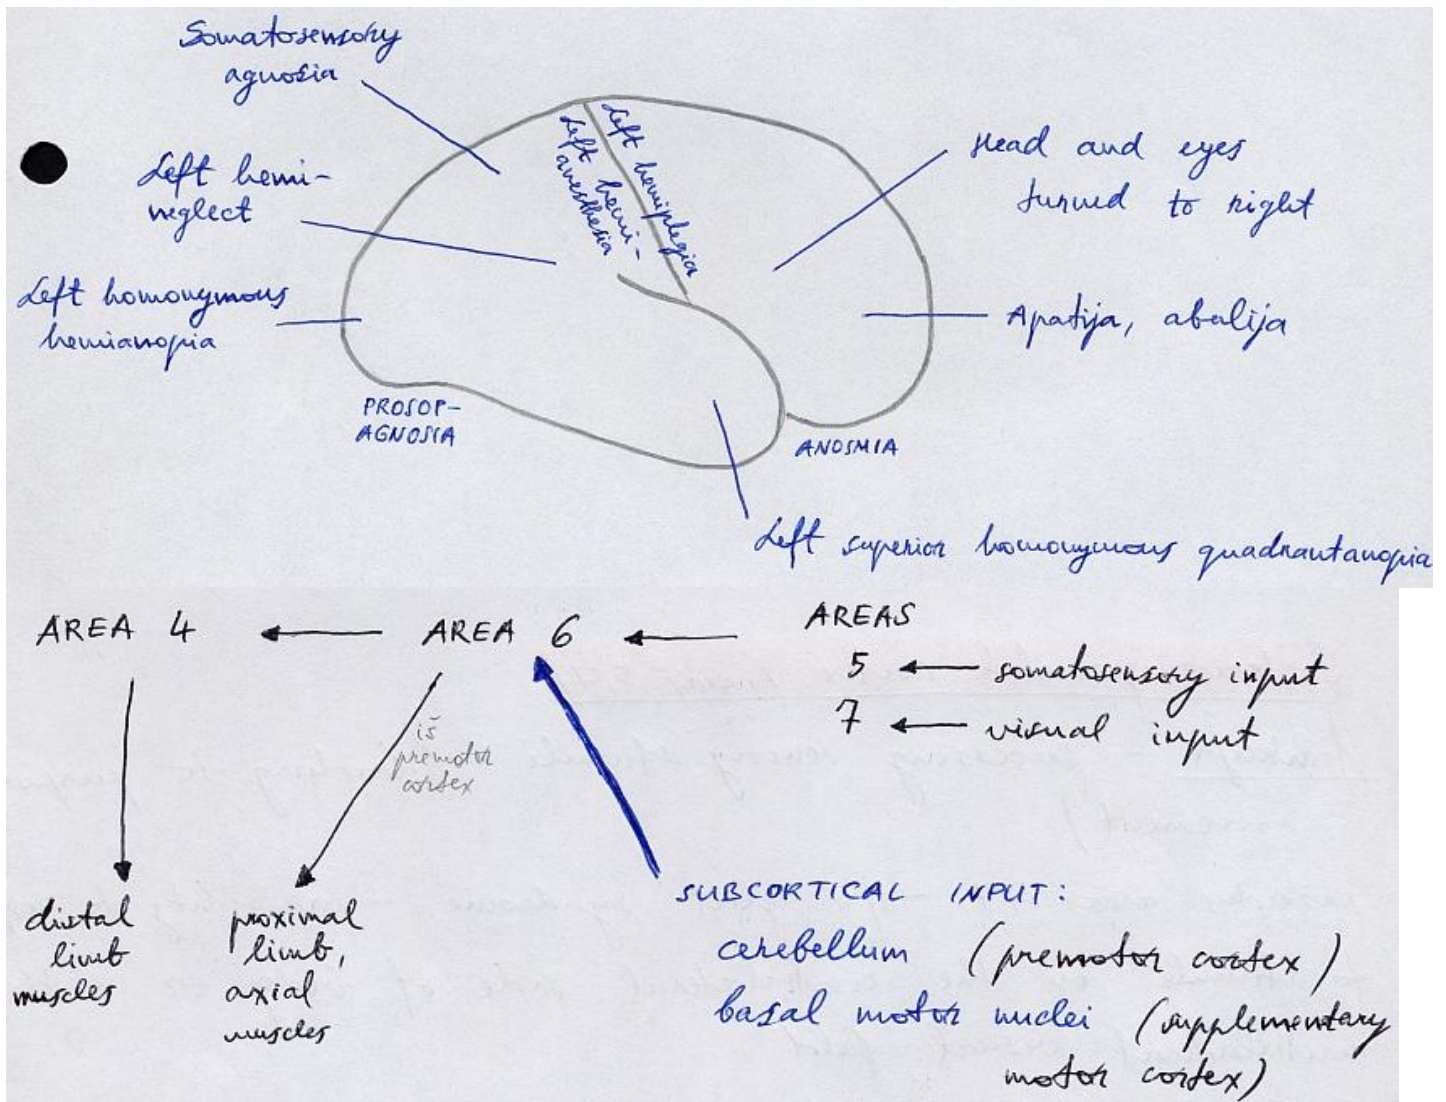 Somatosensory
agnosia
Left hemi-
neglect
Left homonymous
hemianopia
Left hemiplegia
Left hemi-
anesthesia
Head and eyes
turned to right
Apatija, abulija
PROSOP-
AGNOSIA
ANOSMIA
Left superior homonymous quadrantanopia
AREA 4
AREA 6
AREAS
5
somatosensory input
7
visual input
iš
premotor
cortex
distal
limb
muscles
proximal
limb,
axial
muscles
SUBCORTICAL INPUT:
cerebellum (premotor cortex)
basal motor nuclei (supplementary
motor cortex)